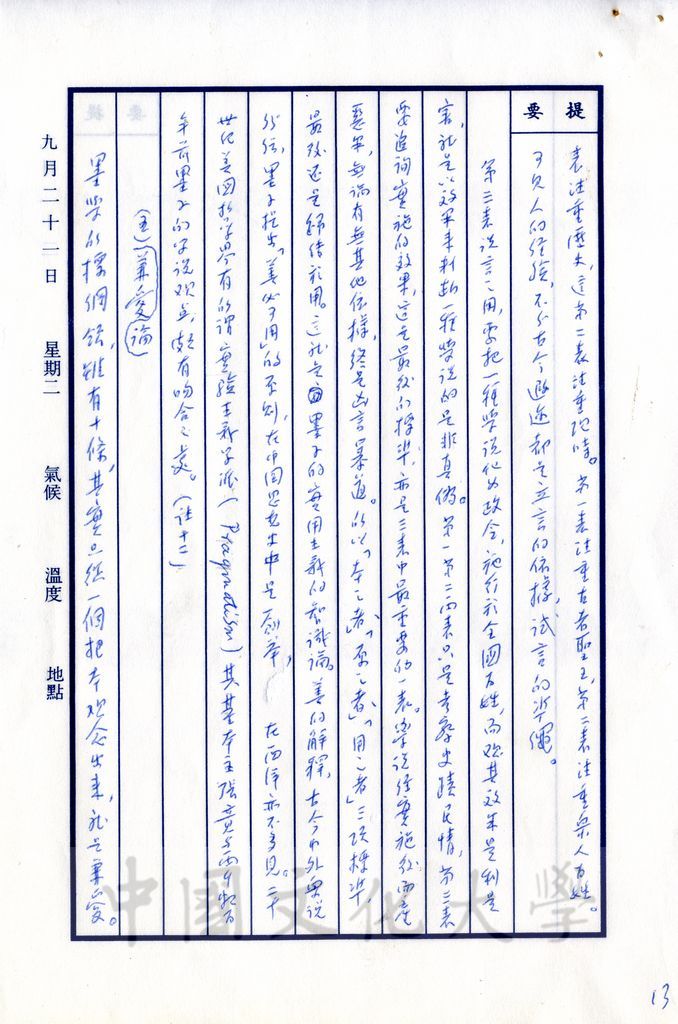 提要
表注重歷史,這第二表注重現時。第一表注重古者聖王,第二表注重眾人百姓。
可見人的經驗,不分古今遐迩都是立言的依據,試言的準繩。
第三表說言之用,要把一種學說化為政令,施行於全國百姓,而观其效果是利是
害,就是以效果来判斷一種學說的是非真偽。第一第二兩表只是考察史蹟民情,第三表
要追詢實施的效果,這是最後的標準,亦是三表中最重要的一表。學說經實施後而產
惡果,無論有無其他依據,終是凶言暴道。所以「本之者」「原之者」「用之者」三項標準,
最後还是歸结於用。這就是墨子的實用主義的知識論。善的解釋,古今中外眾说
紛纭,墨子提出「善必可用」的原則,在中国思想史中是創举,在西洋亦不多見。二十
世纪美國哲学界有所謂實驗主義学派(Pragmatism)其基本主張竟与兩千數百
年前墨子的学说观点,頗有吻合之處。(註十二)
(五)兼愛論
墨學的標綱領,雖有十條,其實只從一個根本观念出来,就是兼愛。
九月二十一日 星期二 氣候 溫度 地點
中國文化大學
13